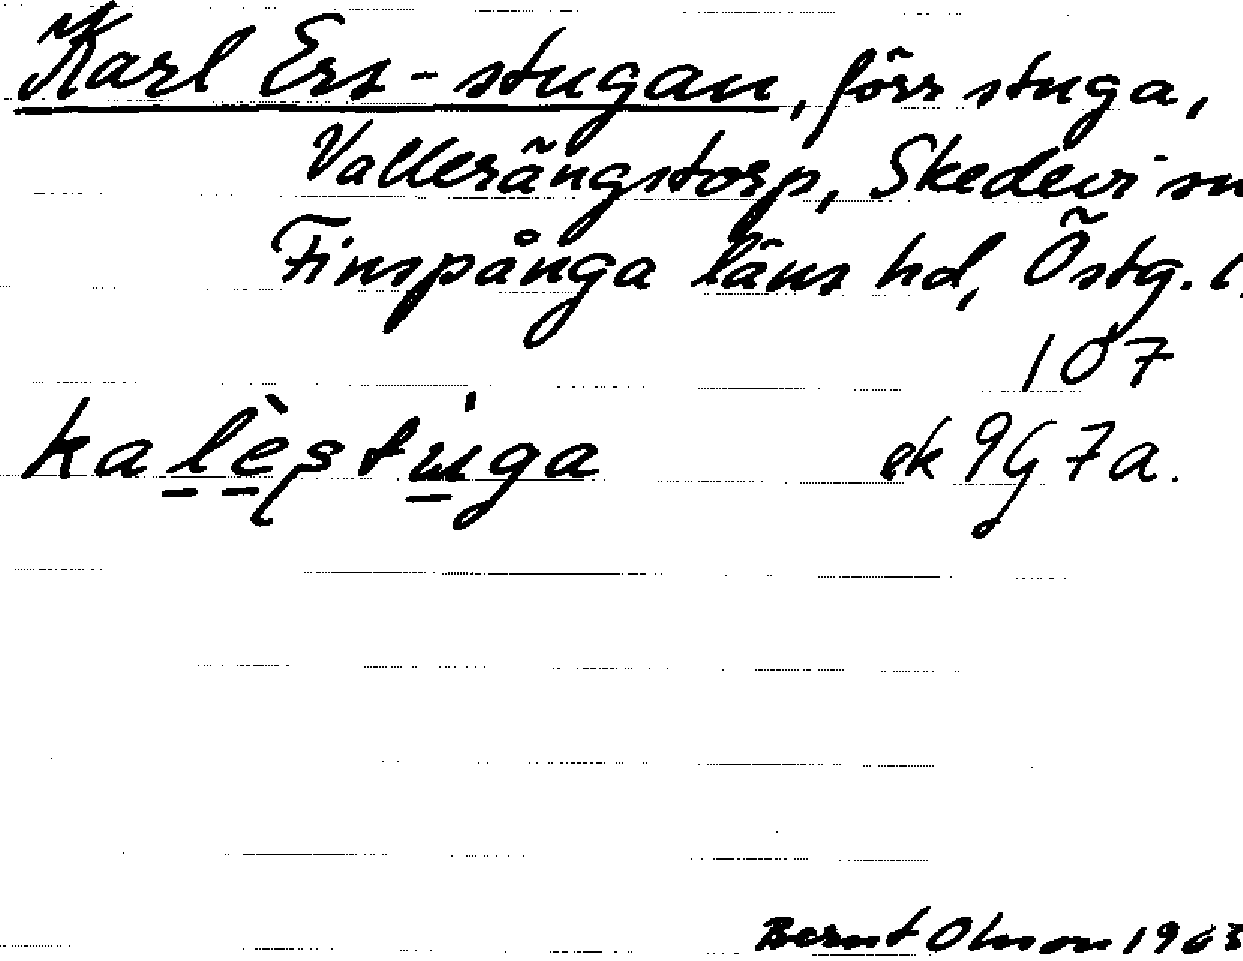 Karl Ers-stugan, förr stuga,
Vallerängstorp, Skedevi sn
Finspånga läns hd, Östg. l.
107
kalèstu̇ga ek 9G7a.
Bernt Olsson 1963